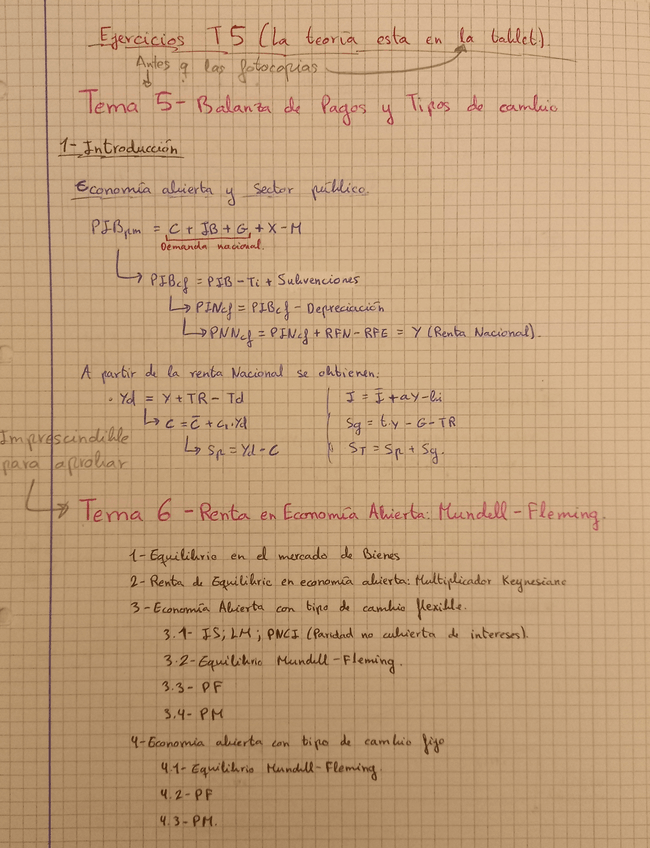 Ejercicios T5 (La teoría esta en la tablet).
Antes q las fotocopias
Tema 5- Balanza de Pagos y Tipos de cambio
1- Introducción
Economía abierta y sector público.
PIBpm = C + IB + G + X - M
Demanda nacional.
PIBcf = PIB - Ti + Subvenciones
PINcf = PIBcf - Depreciación
PNNcf = PINcf + RFN - RFE = Y (Renta Nacional).
A partir de la renta Nacional se obtienen:
· Yd = Y + TR - Td
I = Ī + aY - bi
C = C̄ + c₁·Yd
Sg = t·y - G - TR
Sp = Yd - C
ST = Sp + Sg.
Imprescindible
para aprobar
Tema 6 - Renta en Economía Abierta: Mundell-Fleming.
1- Equilibrio en el mercado de Bienes
2- Renta de Equilibrio en economía abierta: Multiplicador Keynesiano
3- Economía Abierta con tipo de cambio flexible.
3.1- IS; LM; PNCI (Paridad no cubierta de intereses).
3.2- Equilibrio Mundell-Fleming.
3.3- PF
3.4- PM
4- Economía abierta con tipo de cambio fijo
4.1- Equilibrio Mundell-Fleming.
4.2- PF
4.3- PM.